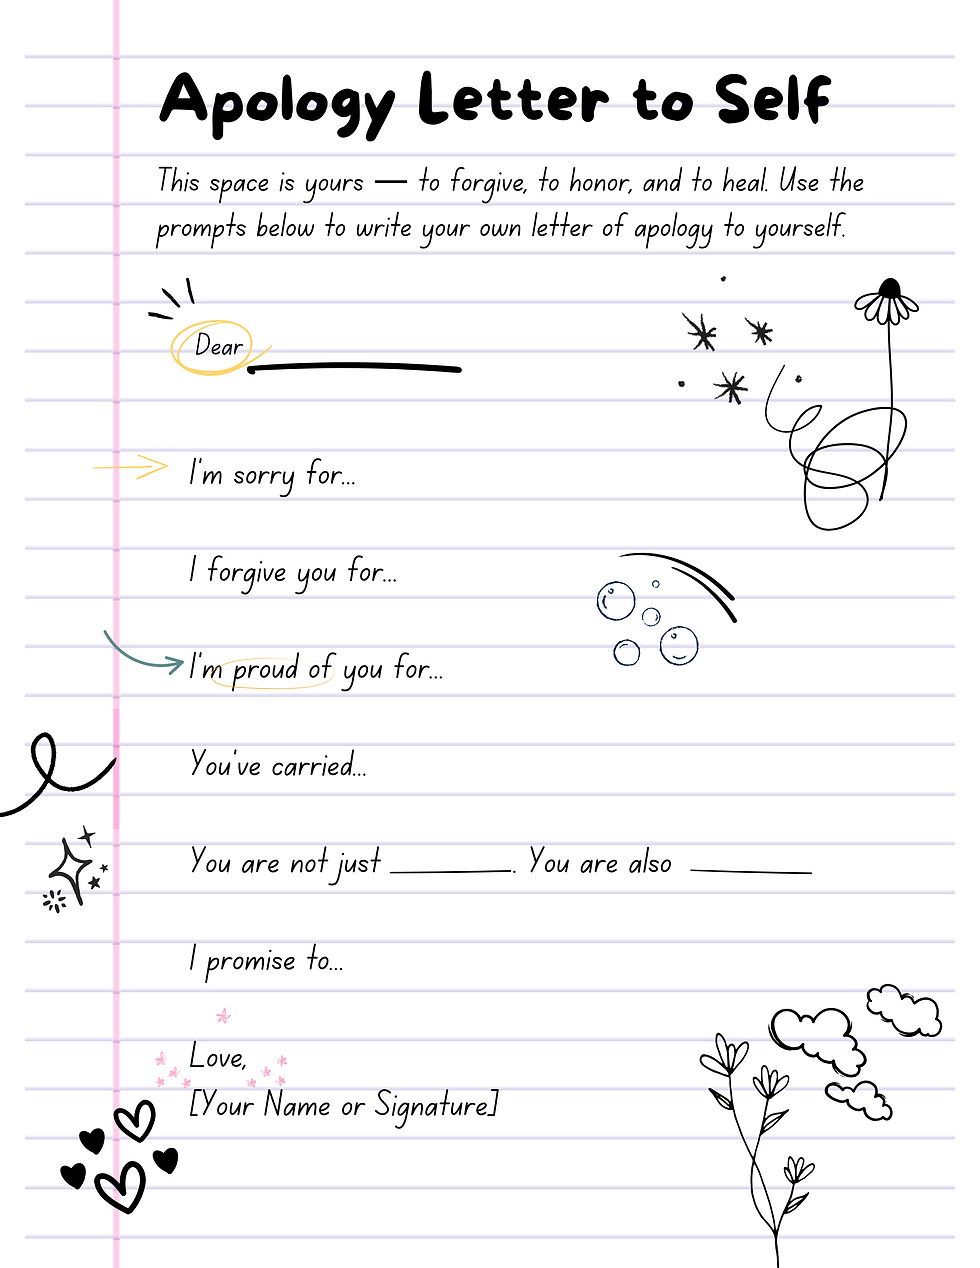 Apology Letter to Self
This space is yours — to forgive, to honor, and to heal. Use the
prompts below to write your own letter of apology to yourself.
Dear
I'm sorry for...
I forgive you for...
I'm proud of you for...
You've carried...
You are not just __________. You are also __________
I promise to...
Love,
[Your Name or Signature]